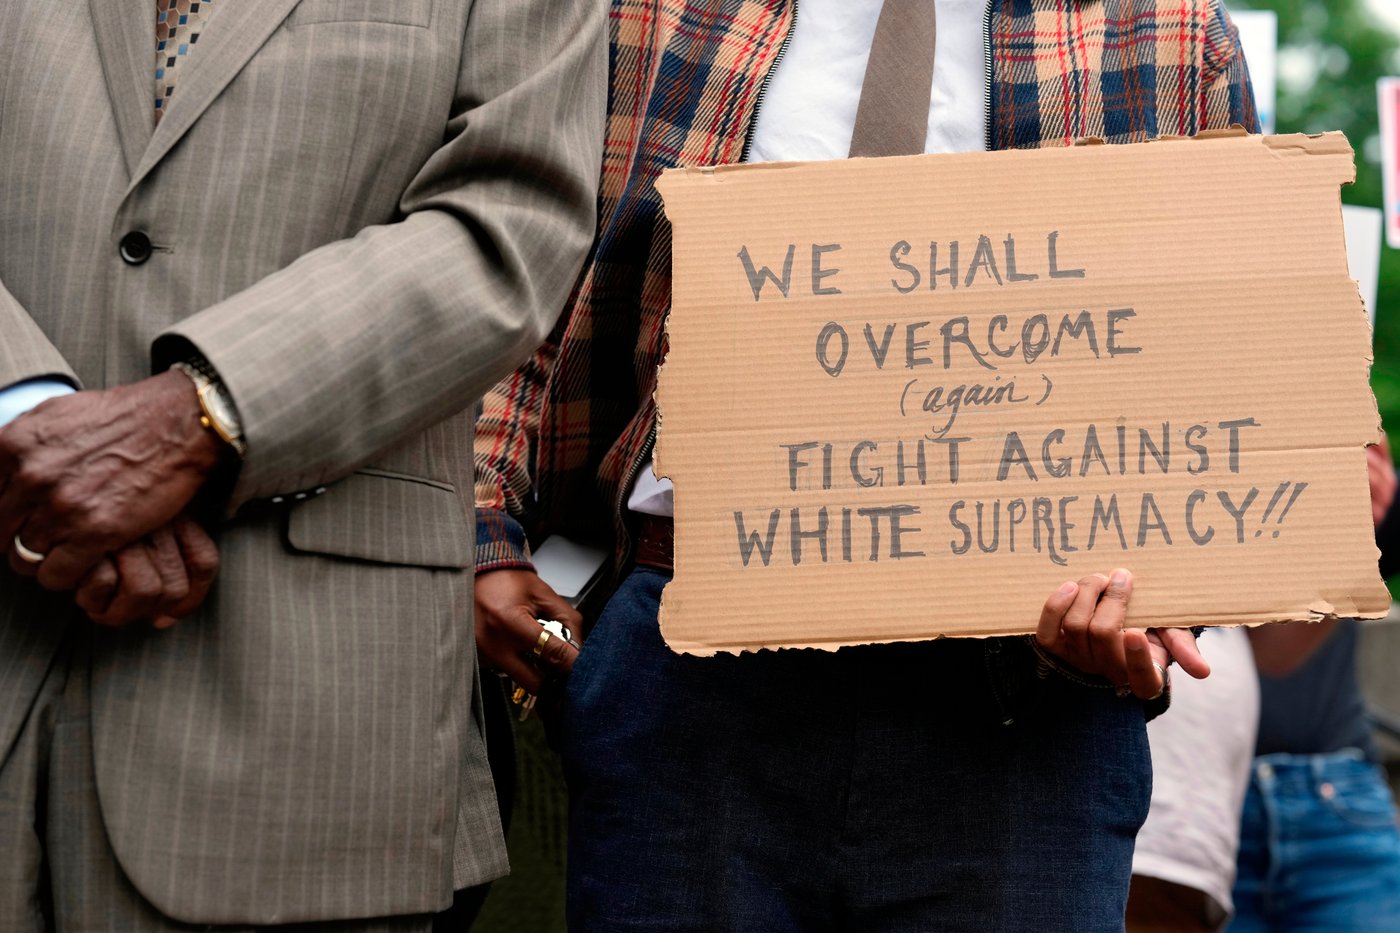 WE SHALL
OVERCOME
(again)
FIGHT AGAINST
WHITE SUPREMACY!!